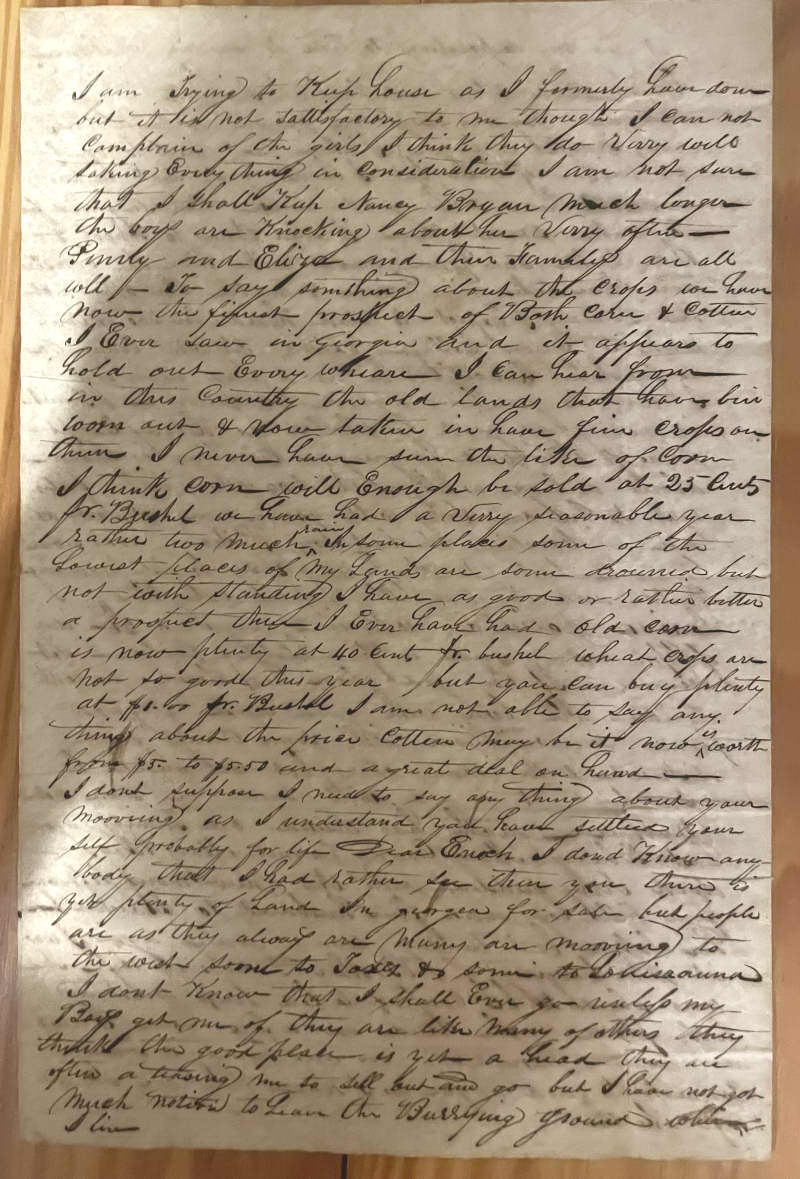 I am Trying to Keep house as I formerly have done
but it is not sattisfactory to me though I can not
complain of the girls I think they do verry well
taking Every thing in consideration I am not sure
that I shall Keep Nancy Bryan much longer
the boys are Knocking about her verry often —
and Eliza and their Familys are all
well — To say somthing about the crops we have
now the finest prospect of Both corn & cotten
I Ever saw in georgia and it appears to
hold out Every wheare I can hear from
in this Country the old lands that have bin
worn out & now taken in have fine crops on
them I never have seen the like of corn
I think corn will Enough be sold at 25 Cents
pr. Bushel we have had a verry seasonable year
rather two much rain in some places some of the
Lowest places of my Land are some drowned but
not with standing I have as good or rather better
a prospect then I Ever have had old corn
is now plenty at 40 cent pr. bushel wheat crops are
not so good this year but you can buy plenty
at $1.00 pr. Bushel I am not able to say any
thing about the price cotten may be it now is worth
from $5. to $5.50 and a great deal on hand —
I dont suppose I need to say any thing about your
mooving as I understand you have settled your
self probably for life Dear Enoch I dond Know any
body that I had rather see then you there is
yet plenty of Land in georgea for sale but people
are as they always are many are mooving to
the west soom to Texes & some to Louisaanna
I dont Know that I shall Ever go unless my
Boys get me of they are like many of others they
think the good place is yet a head they are
often a teasing me to sell out and go but I have not got
much notion to Leave the Burrying ground where
I live